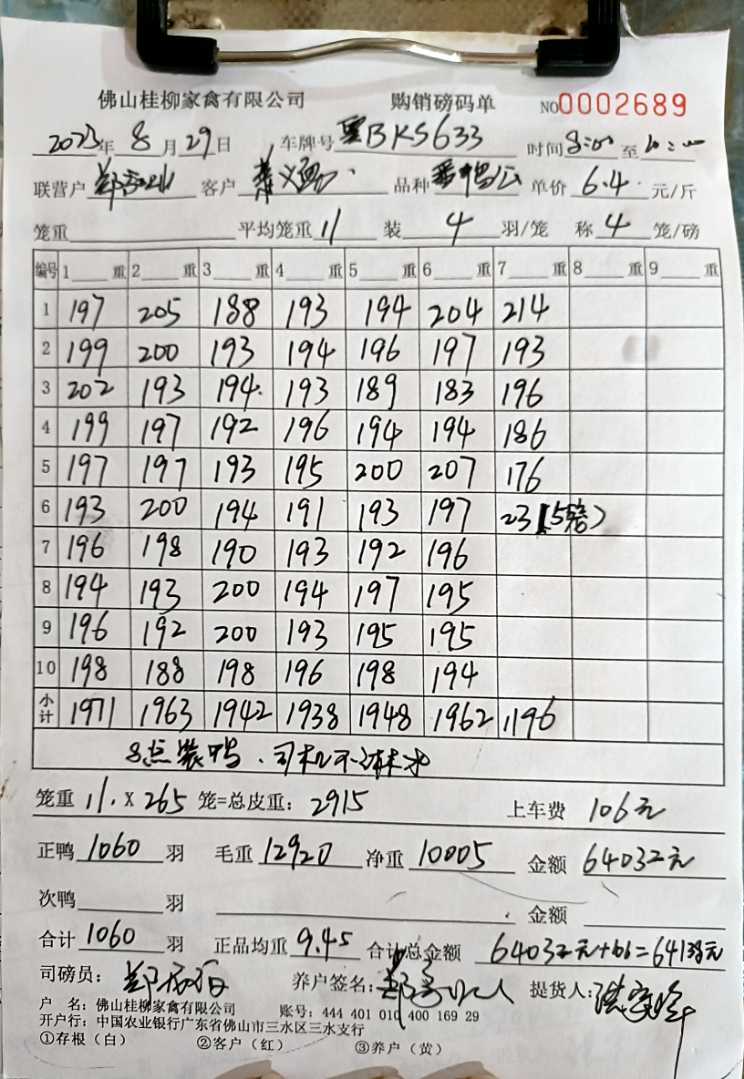 佛山桂柳家禽有限公司 购销磅码单 NO0002689
2023年8月29日 车牌号 BKS633 时间8:00至10:00
联营户 客户 品种 番鸭公 单价 6.4 元/斤
笼重 平均笼重 11 装 4 羽/笼 称 4 笼/磅
编号 1 重 2 重 3 重 4 重 5 重 6 重 7 重 8 重 9 重
1 197 205 188 193 194 204 214
2 199 200 193 194 196 197 193
3 202 193 194 193 189 183 196
4 199 197 192 196 194 194 186
5 197 197 193 195 200 207 176
6 193 200 194 191 193 197 23(5磅)
7 196 198 190 193 192 196
8 194 193 200 194 197 195
9 196 192 200 193 195 195
10 198 188 198 196 198 194
小计 1971 1963 1942 1938 1948 1962 1196
8点装鸭.司机不淋水
笼重 11.X 265 笼=总皮重: 2915 上车费 106元
正鸭 1060 羽 毛重 12920 净重 10005 金额 64032元
次鸭 羽 金额
合计 1060 羽 正品均重 9.45 合计总金额 64032元+106=64138元
司磅员: 养户签名: 提货人:
户 名: 佛山桂柳家禽有限公司 账号: 444 401 010 400 169 29
开户行: 中国农业银行广东省佛山市三水区三水支行
①存根(白) ②客户(红) ③养户(黄)